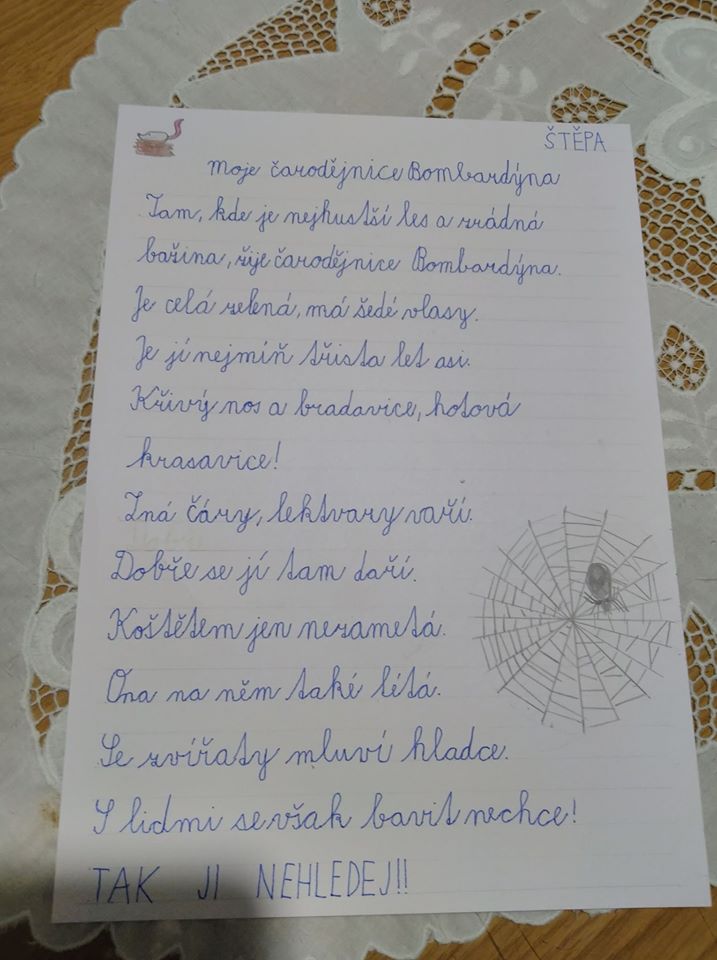 ŠTĚPA
Moje čarodějnice Bombardýna
Tam, kde je nejhustší les a zrádná
bažina, žije čarodějnice Bombardýna.
Je celá zelená, má šedé vlasy.
Je jí nejmíň třista let asi.
Křivý nos a bradavice, hotová
krasavice!
Zná čáry, lektvary vaří.
Dobře se jí tam daří.
Koštětem jen nezametá.
Ona na něm také létá.
Se zvířaty mluví hladce.
S lidmi se však bavit nechce!
TAK JI NEHLEDEJ!!